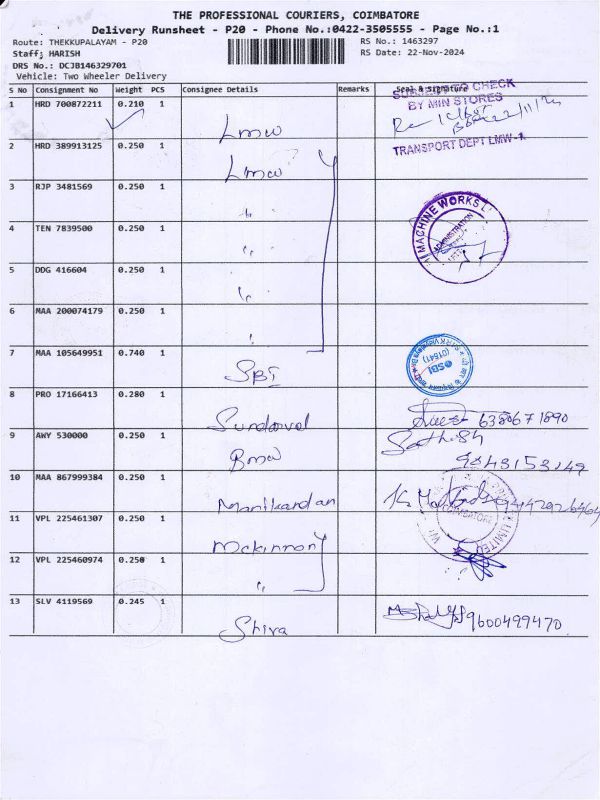 THE PROFESSIONAL COURIERS, COIMBATORE
Delivery Runsheet - P20 - Phone No.:0422-3505555 - Page No.:1
Route: THEKKUPALAYAM - P20
RS No.: 1463297
Staff; HARISH
RS Date: 22-Nov-2024
DRS No.: DCJB146329701
Vehicle: Two Wheeler Delivery
S No Consignment No Weight PCS Consignee Details Remarks Seal & Signature
SUBJECT TO CHECK
BY MIN STORES
1 HRD 700872211 0.210 1
Lmw
TRANSPORT DEPT LMW-1
2 HRD 389913125 0.250 1
Lmw
3 RJP 3481569 0.250 1
"
MACHINE WORKS
ADMINISTRATION
4 TEN 7839500 0.250 1
"
5 DDG 416604 0.250 1
"
6 MAA 200074179 0.250 1
"
7 MAA 105649951 0.740 1
SBI
SBI
(01541)
8 PRO 17166413 0.280 1
Sundaravel
6380671890
9 AWY 530000 0.250 1
Bmw
Sathish
9843153249
10 MAA 867999384 0.250 1
Manikandan
11 VPL 225461307 0.250 1
Mckinnon
COIMBATORE
LIMITED
12 VPL 225460974 0.250 1
"
13 SLV 4119569 0.245 1
Shiva
9600499470